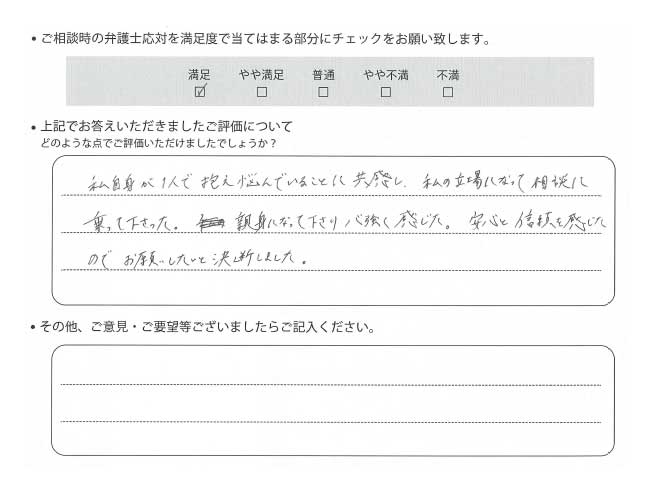 • ご相談時の弁護士応対を満足度で当てはまる部分にチェックをお願い致します。
満足 やや満足 普通 やや不満 不満
☑ ☐ ☐ ☐ ☐
• 上記でお答えいただきましたご評価について
どのような点でご評価いただけましたでしょうか？
私自身が1人で抱え悩んでいることに共感し、私の立場になって相談に
乗って下さった。親身になって下さり心強く感じた。安心と信頼を感じた
のでお願いしたいと決断しました。
• その他、ご意見・ご要望等ございましたらご記入ください。